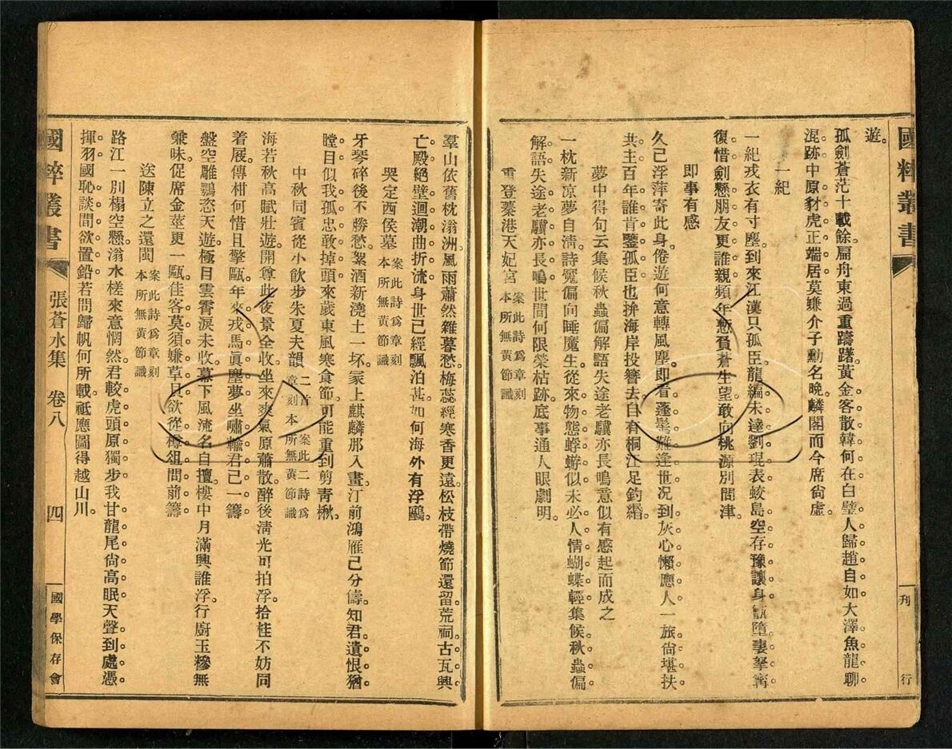 國粹叢書
刊行
遊。
孤劍蒼茫十載餘。扁舟東過重躊躇。黃金客散韓何在。白璧人歸趙自如。大澤魚龍聊
混跡。中原豺虎正端居。莫嫌介子勳名晚。麟閣而今席尙虛。
一紀
一紀戎衣有寸塵。到來江漢只孤臣。龍編未達劉琨表。蛟島空存豫讓身。甑墮妻孥寗
復惜。劍懸朋友更誰親。頻年慙負蒼生望。敢向桃源別問津。
即事有感
久已浮萍寄此身。倦遊何意轉風塵。即看蓬鬢難逢世。况到灰心懶應人。一旅尙堪扶
共主。百年誰肯鑒孤臣。也拚海岸投簪去。自有桐江足釣緡。
夢中得句云集候秋蟲偏解語失途老驥亦長鳴意似有感起而成之
一枕新凉夢自清。詩魂偏向睡魔生。從來物態蜉蝣似。未必人情蝴蝶輕。集候秋蟲偏
解語。失途老驥亦長鳴。世間何限榮枯跡。底事通人眼劇明。
重登蓁港天妃宮 案此詩爲章刻本所無黃節識
羣山依舊枕滃洲。風雨蕭然雜暮愁。梅蕊經寒香更遠。松枝帶燒節還留。荒祠古瓦興
亡殿。絕壁迴潮曲折流。身世已經飄泊甚。如何海外有浮鷗。
哭定西侯墓 案此詩爲章刻本所無黃節識
牙琴碎後不勝愁。絮酒新澆土一坏。冢上麒麟那入畫。汀前鴻雁已分儔。知君遺恨猶
瞠目。似我孤忠敢掉頭。來歲東風寒食節。可能重到剪青楸。
中秋同賓從小飮步朱夏夫韻 二首 案此二詩爲章刻本所無黃節識
海若秋高賦壯遊。開尊此夜景全收。坐來爽氣原蕭散。醉後淸光可拍浮。拾徃不妨同
着屐。傳柑何惜且擎甌。年來戎馬眞塵夢。坐嘯輸君已一籌。
盤空雕鶚恣天遊。極目雲霄淚未收。幕下風流名自擅。樓中月滿興誰浮。行廚玉糝無
兼味。促席金莖更一甌。佳客莫須嫌草具。欲從樽俎問前籌。
送陳立之還閩 案此詩爲章刻本所無黃節識
路江一別榻空懸。滃水槎來意惘然。君較虎頭原獨步。我甘龍尾尙高眠。天聲到處憑
揮羽。國恥談間欲置鉛。若問歸帆何所載。祗應圖得越山川。
國粹叢書
張蒼水集 卷八
四
國學保存會